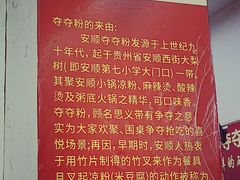 夺夺粉的来由:
安顺夺夺粉发源于上世纪九
十年代，起于贵州省安顺西街大梨
树（即安顺第七小学大门口）一带，
其聚安顺小锅凉粉、麻辣烫、酸辣
烫及粥底火锅之精华，可口味香。
夺夺粉，顾名思义带有争夺之意，
实为大家欢聚、围桌争夺抢吃的喜
悦场景；再因，早时候，安顺人热衷于
用竹片制得的竹叉来作为餐具
且叉起凉粉（米豆腐）的动作被称为